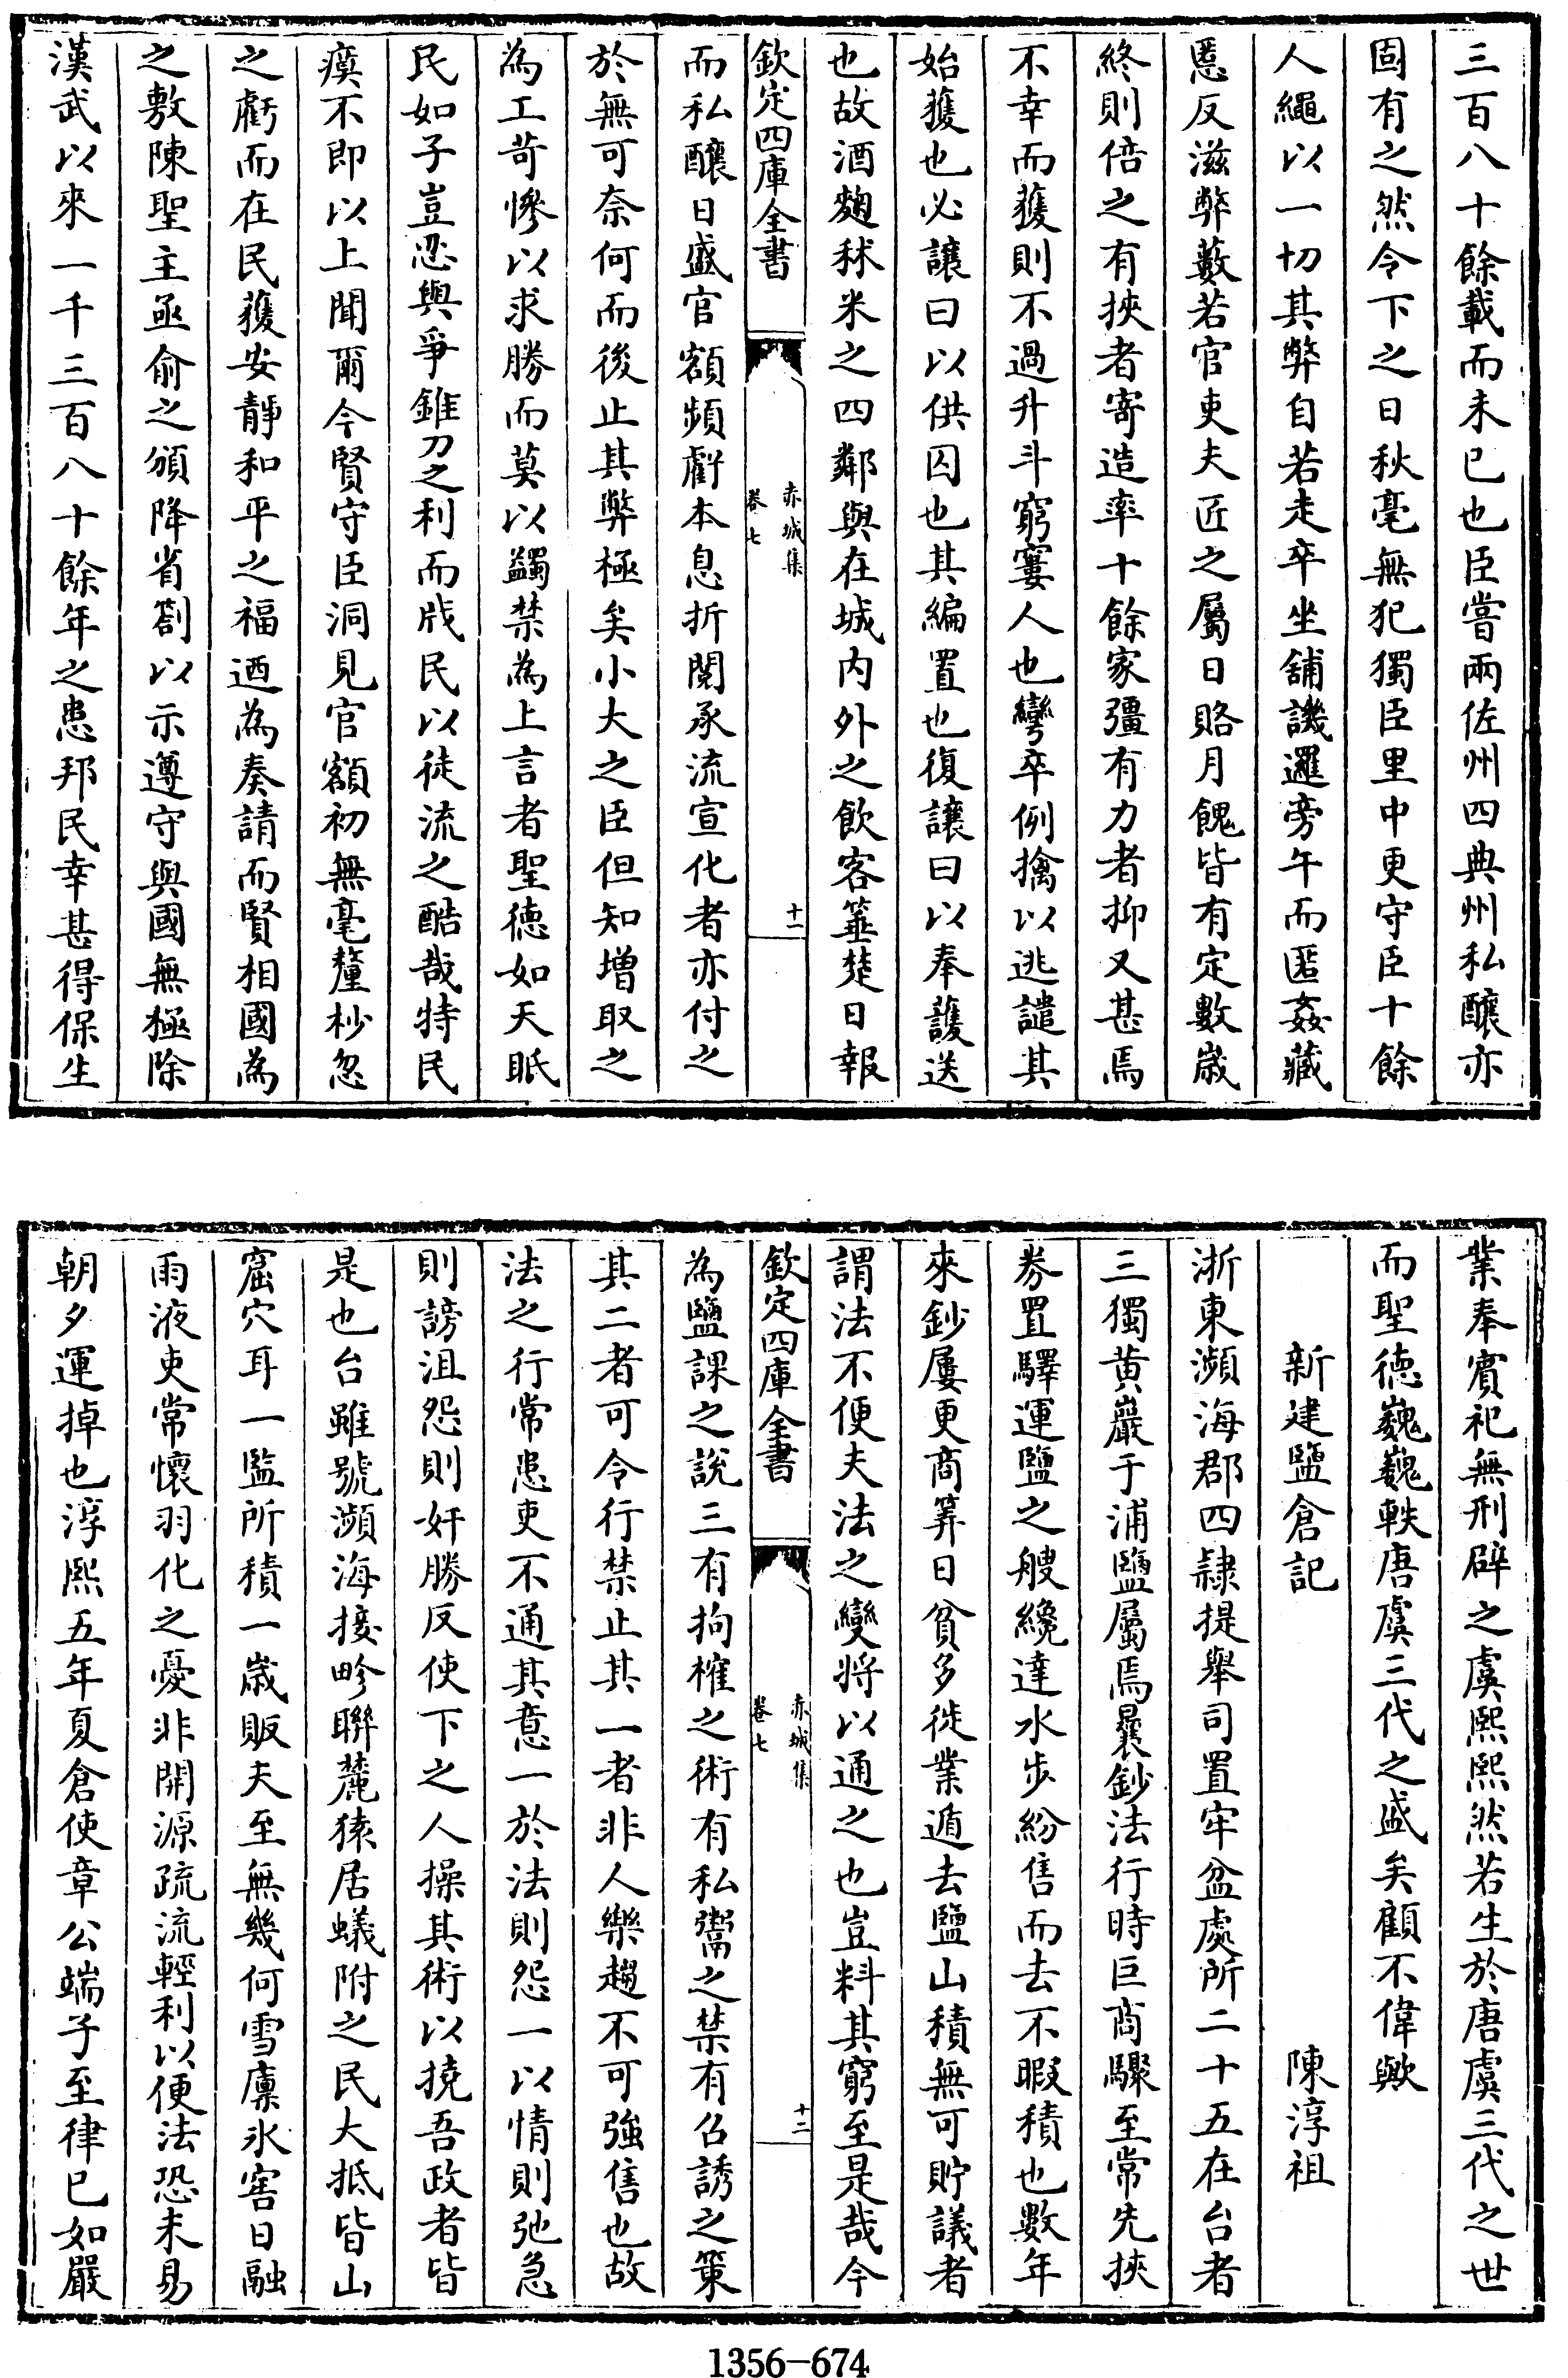 三百八十餘載而未已也臣嘗兩佐州四典州私釀亦
固有之然令下之日秋毫無犯獨臣里中更守臣十餘
人繩以一切其弊自若走卒坐舖譏邏旁午而匿姦藏
慝反滋弊藪若官吏夫匠之屬日賂月餽皆有定數歲
終則倍之有挾者寄造率十餘家彊有力者抑又甚焉
不幸而獲則不過升斗窮窶人也彎卒例擒以逃譴其
始獲也必讓曰以供囚也其編置也復讓曰以奉護送
也故酒麴秫米之四鄰與在城内外之飲客箠楚日報
欽定四庫全書
赤城集
卷七
十一
而私釀日盛官額頻虧本息折閲承流宣化者亦付之
於無可奈何而後止其弊極矣小大之臣但知増取之
為工苛慘以求勝而莫以蠲禁為上言者聖德如天眂
民如子豈忍與爭錐刀之利而戕民以徒流之酷哉特民
瘼不即以上聞爾今賢守臣洞見官額初無毫釐杪忽
之虧而在民獲安靜和平之福迺為奏請而賢相國為
之敷陳聖主亟俞之頒降省劄以示遵守與國無極除
漢武以來一千三百八十餘年之患邦民幸甚得保生
業奉賓祀無刑辟之虞熙熙然若生於唐虞三代之世
而聖德巍巍軼唐虞三代之盛矣顧不偉歟
新建鹽倉記
陳淳祖
浙東瀕海郡四隷提舉司置牢盆處所二十五在台者
三獨黄巖于浦鹽屬焉曩鈔法行時巨商驟至常先挾
券置驛運鹽之艘纔達水步紛售而去不暇積也數年
來鈔屢更商筭日貧多徙業遁去鹽山積無可貯議者
謂法不便夫法之變将以通之也豈料其窮至是哉今
欽定四庫全書
赤城集
卷七
十二
為鹽課之説三有拘榷之術有私鬻之禁有召誘之策
其二者可令行禁止其一者非人樂趨不可強售也故
法之行常患吏不通其意一於法則怨一以情則弛急
則謗沮怨則奸勝反使下之人操其術以撓吾政者皆
是也台雖號瀕海接畛聯麓猿居蟻附之民大抵皆山
窟穴耳一監所積一歲販夫至無幾何雪廪氷窖日融
雨液吏常懷羽化之憂非開源疏流輕利以便法恐未易
朝夕運掉也淳熙五年夏倉使章公端子至律已如嚴
1356-674